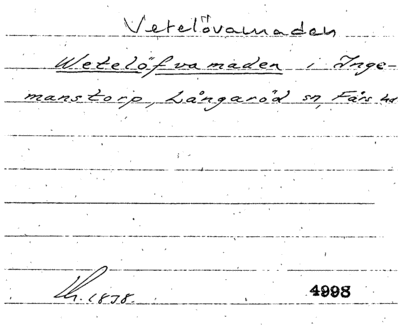 Vetelövamaden
Wetelöfvamaden i Inge-
manstorp, Långaröd sn, Färs hd
1838.
4998